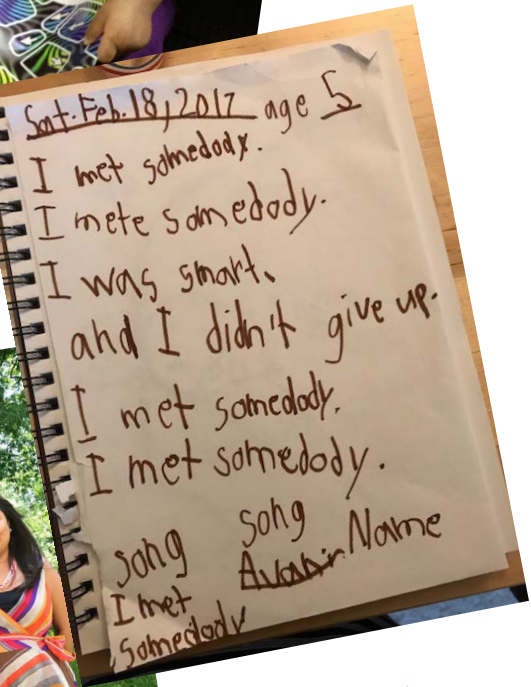 Sat. Feb. 18, 2017 age 5
I met somedody.
I mete somedody.
I was smart.
and I didn't give up.
I met somedody.
I met somedody.
song song Name
I met
Somedody